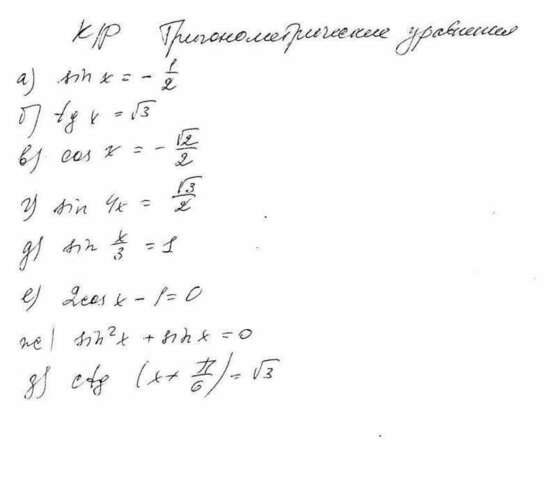 К/Р Тригонометрические уравнения
а) sin x = - 1/2
б) tg x = √3
в) cos x = - √2/2
г) sin 4x = √3/2
д) sin x/3 = 1
е) 2cos x - 1 = 0
же) sin²x + sin x = 0
д) ctg (x + π/6) = √3